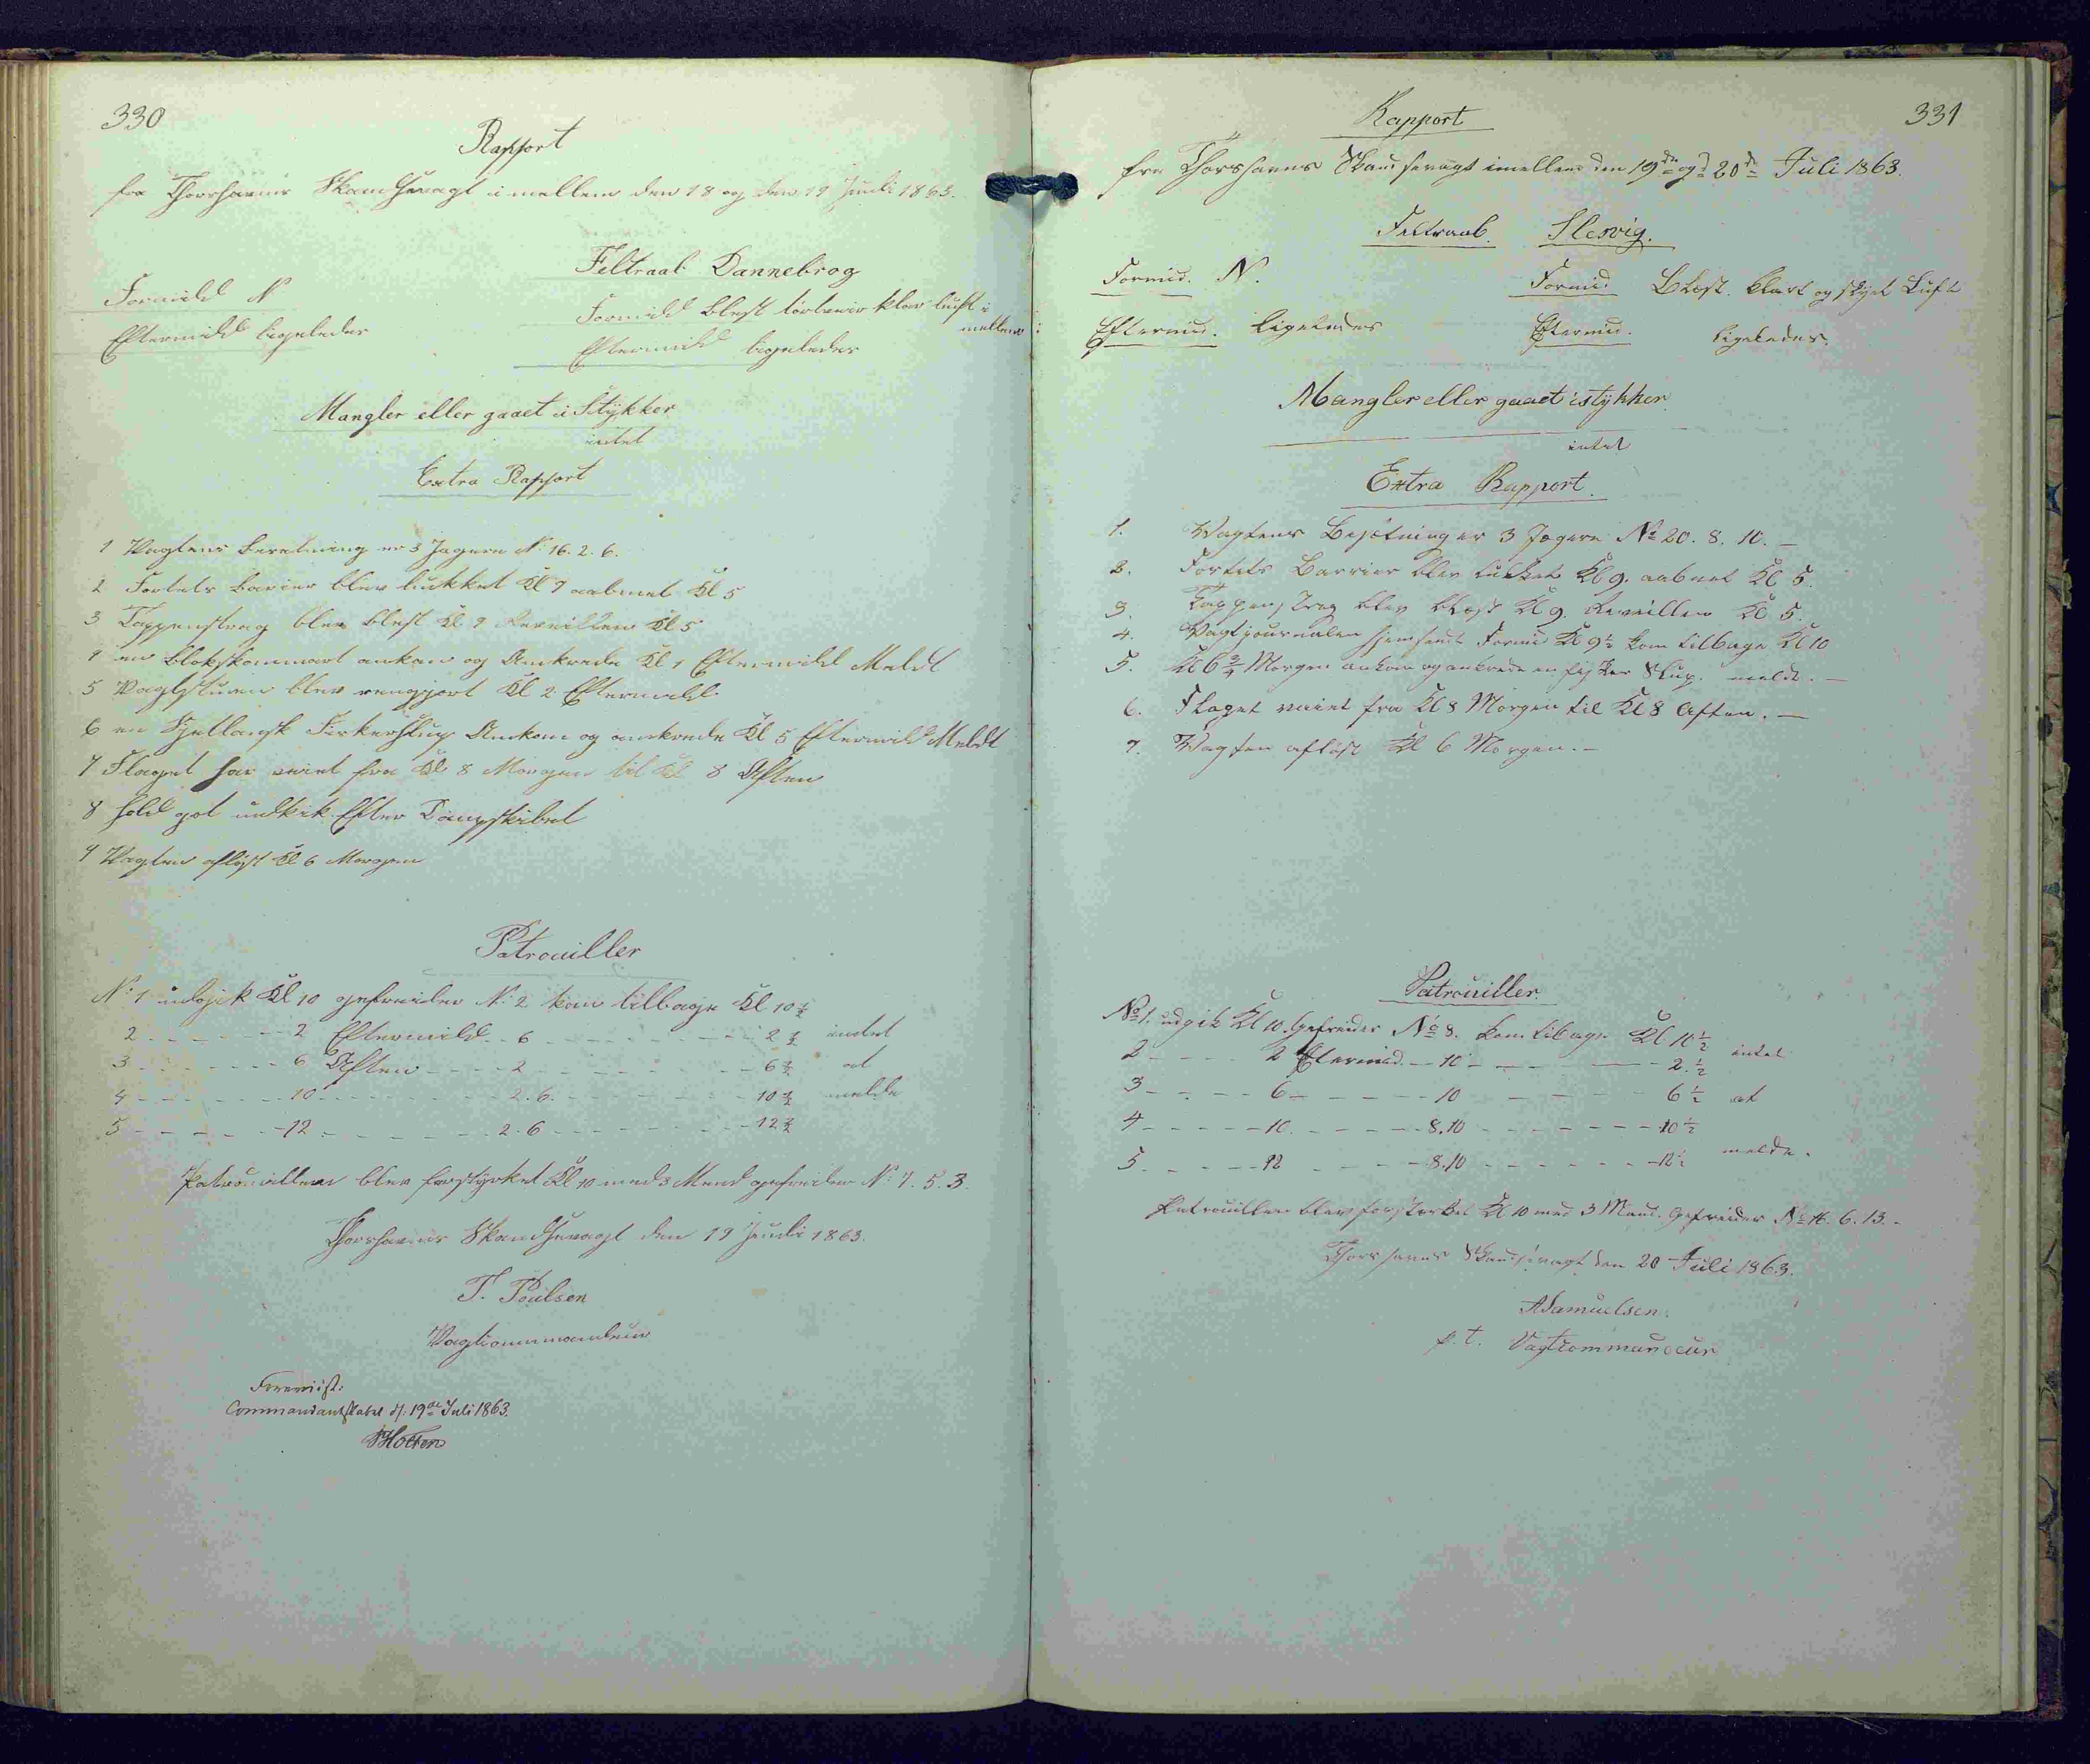 330
Rapport
fra Thorshavns Skandsevagt i mellem den 18 og den 19 Juuli 1863.
Feltraab Dannebrog
Formidd N
Formidd blest törlaveir klar luft i
mellem
Eftermidd ligeledes
Eftermidd ligeledes
Mangler eller gaaet i Stÿkker
intet
Extra Rapport
1 Vagtens besetning er 3 Jagere N: 16. 2. 6.
2 Fortets barier blev lukket Kl 9 aabnet Kl 5
3 Tappenstrag blev blest Kl 9 Reveillen Kl 5
4 en ankom og Ankrede Kl 1 Eftermidd Meldt
5 Vagtstuen blev rengjort Kl 2 Eftermidd
6 en Fiskerslup Ankom og ankrede Kl 5 Eftermidd Meldt
7 Flaget har vaiet fra Kl 8 Morgen til Kl 8 Aften
8 hold got udkik Efter Dampskibet
9 Vagten afløst Kl 6 Morgen
Patrouiller
N: 1 udgik Kl 10 gefreider N: 2 kom tilbage Kl 10½
2 - - - - - 2 Eftermidd - 6 - - - - - 2½ intet
3 - - - - - 6 Aften - - - - 2 - - - - - 6½ at
4 - - - - - 10 - - - - - 2. 6. - - - - - 10½ melde
5 - - - - - 12 - - - - - 2. 6 - - - - - 12½
Patrouillen blev forstÿrket Kl 10 med 3 Mend gefreider N: 7. 5. 3.
Thorshavns Skandsevagt den 19 Juuli 1863.
Poulsen
Vagtcommandeur
Forevist:
Commandantskabet d. 19de Juli 1863.
HCMüller
331
Rapport
fra Thorshavns Skandsevagt imellem den 19de og d 20de Juli 1863.
Feltraab. Slesvig.
Formid. N.
Formid Blæst. klart og skyet Luft
Eftermid. ligeledes
Eftermid. ligeledes.
Mangler eller gaaet istykker.
intet
Extra Rapport.
1. Vagtens Besætning er 3 Jægere No 20. 8. 10. —
2. Fortets Barrier blev lukket Kl 9. aabnet Kl 5.
3. Tappenstreg blev blæst Kl 9. Reveillen Kl 5.
4. Vagtjournalen hjemsendt Formid Kl 9½ kom tilbage Kl 10
5. Kl 6¾ Morgen ankom og ankrede en fisker Slup. meldt. —
6. Flaget vaiet fra Kl 8 Morgen til Kl 8 Aften. —
7. Vagten afløst Kl 6 Morgen. —
Patrouiller.
No 1. udgik Kl 10. Gefreider No 8. kom tilbage Kl 10½ intet
2 - - - - 2 Eftermid. - 10 - - - - - 2.½
3 - - - - 6 - - - - - 10 - - - - - 6½ at
4 - - - - - 10. - - - - - 8.10 - - - - - 10½
5. - - - - 12 - - - - - 8.10 - - - - - 12½ melde.
Patrouillen blev forstærket Kl 10 med 3 Mand. Gefreider No 16. 6. 13. -
Thorshavns Skandsevagt den 20 Juli 1863.
ASamuelsen.
p. t. Vagtcommandeur